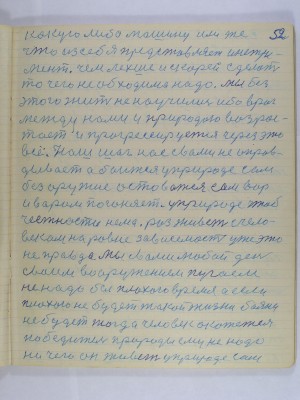 52
какую либо машину или же
что из себя представляет инстру-
мент. чем легше и скорей сделать
то чего необходимо надо. Мы без
этого жить не научились ибо враг
между нами и природою возрос-
тает и прогрессируется через это
всё. Наш шаг нас с вами не оправ-
дывает а боится у природе сам
без оружие остоватся сам вор
и варом погоняет. у природе этой
честности нема. раз живет с чело-
веком наровне зависемость уже это
не правда. Мы с вами любой ден
сваем вооружением пугаем
не надо бы плохого время а если
плохого не будет такой жизни боязни
не будет тогда человек окажется
победителем природы ему не надо
ни чего он живеть у природе сам